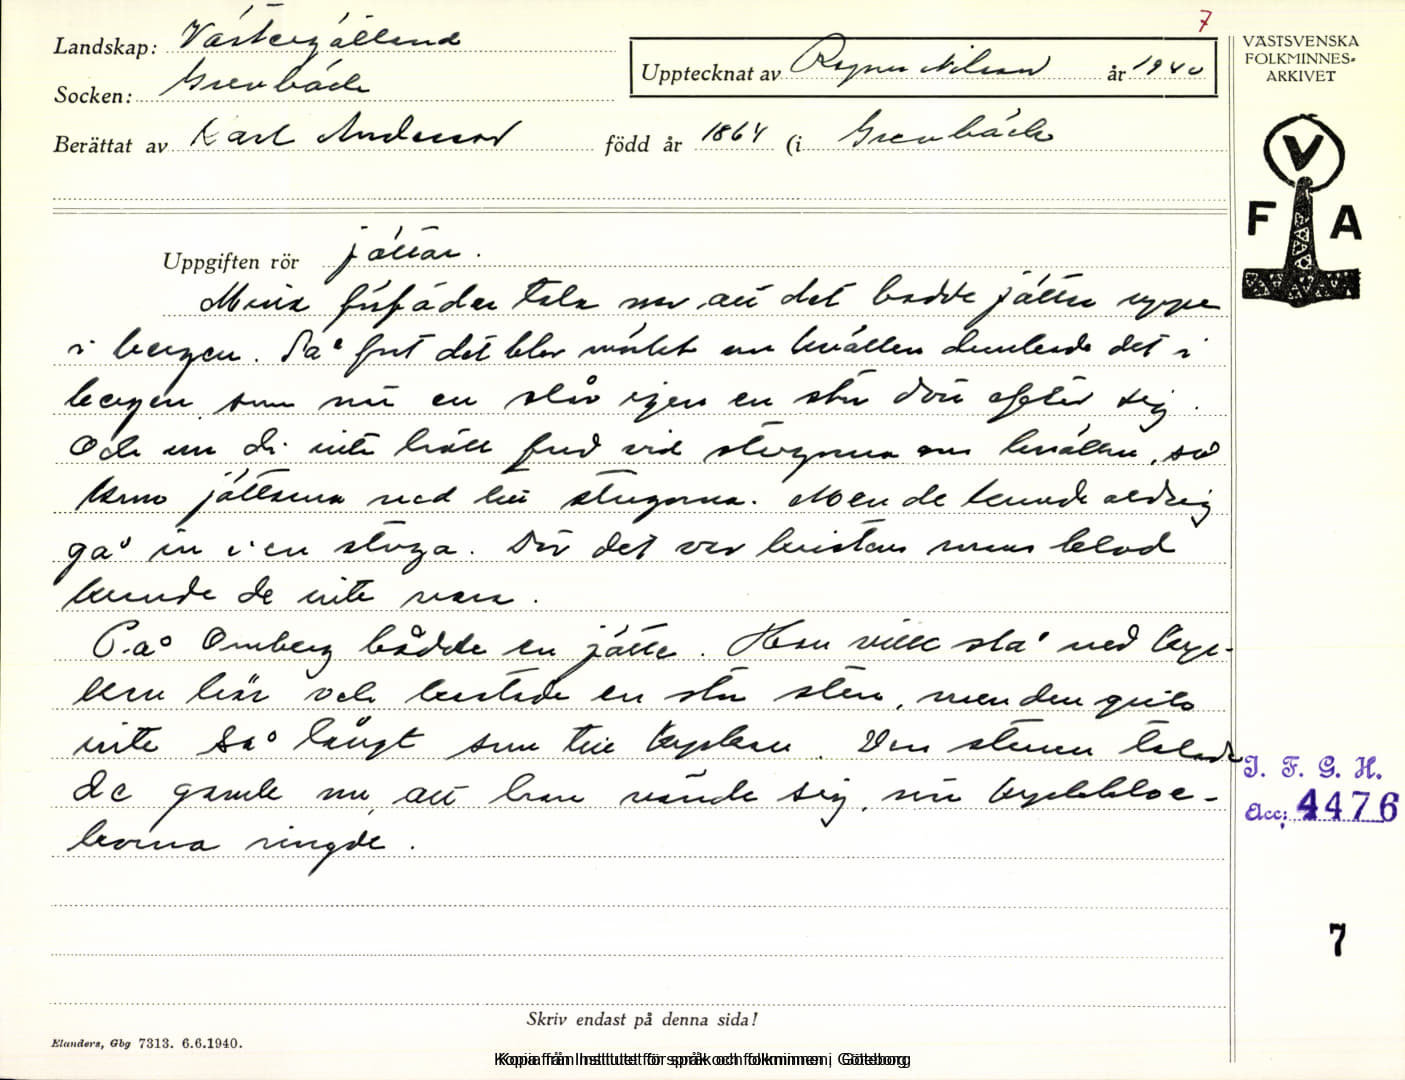 7
Landskap: Västergötland
Socken: Grevbäck
Upptecknat av Ragnar Nilsson år 1940
Berättat av Karl Andersson född år 1864 (i Grevbäck
VÄSTSVENSKA
FOLKMINNES-
ARKIVET
V
F A
Uppgiften rör jättar.
Mina förfäder tala om att det bodde jättar uppe
i bergen. Så fort det blev mörkt om kvällen dunkade det i
bergen som när en slår igen en stor dörr efter sig.
Och um di inte höll frid vid stugorna om kvällen, så
kom jättarna ned till stugorna. Men de kunde aldrig
gå in i en stuga. Där det var kristen mans blod
kunde de inte vara.
På Omberg bodde en jätte. Han ville slå ned kyr-
kan här och kastade en stor sten, men den gick
inte så långt som till kyrkan. Den stenen talade
de gamle om, att han vände sig, när kyrkkloc-
korna ringde.
I. F. G. H.
Acc: 4476
7
Skriv endast på denna sida!
Elanders, Gbg 7313. 6.6.1940.
Kopia från Institutet för språk och folkminnen i Göteborg